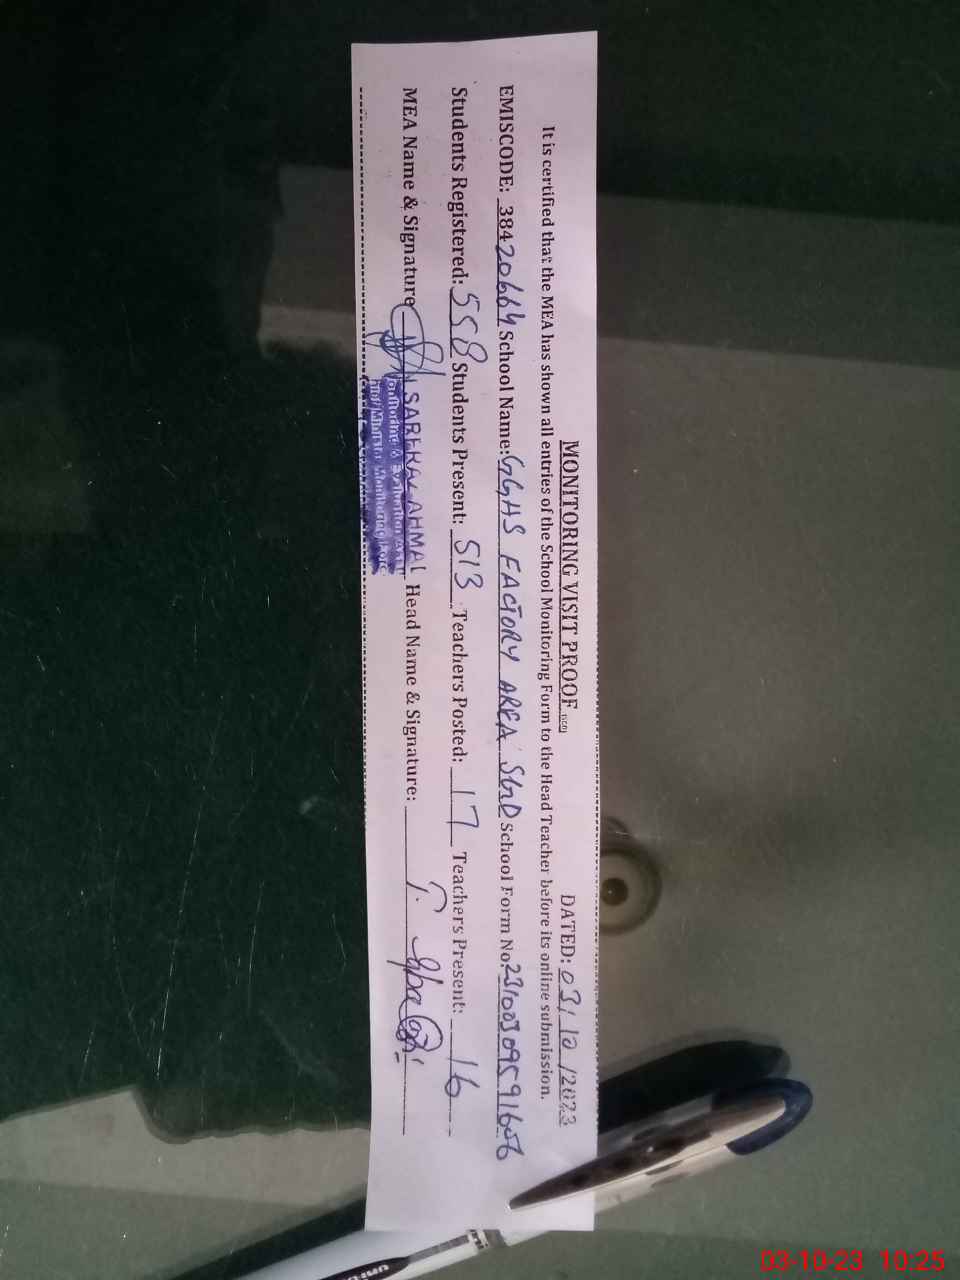 MONITORING VISIT PROOF
DATED: 03/10/2023
It is certified that the MEA has shown all entries of the School Monitoring Form to the Head Teacher before its online submission.
EMISCODE: 38420664 School Name: GGHS FACTORY AREA SGD School Form No: 23100309591606
Students Registered: 558 Students Present: 513 Teachers Posted: 17 Teachers Present: 16
MEA Name & Signature SARFRAZ AHMAD Head Name & Signature:
03-10-23 10:25